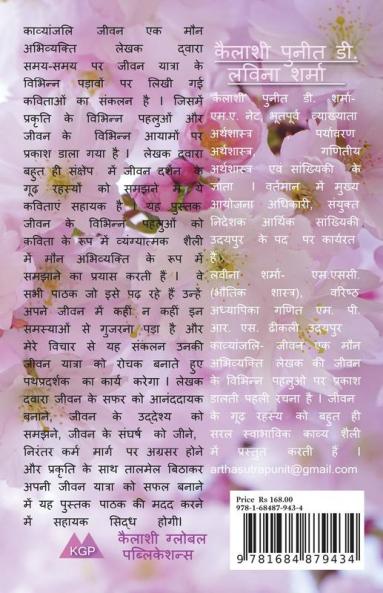 काव्यांजलि जीवन एक मौन
अभिव्यक्ति लेखक द्वारा
समय-समय पर जीवन यात्रा के
विभिन्न पड़ावों पर लिखी गई
कविताओं का संकलन है । जिसमें
प्रकृति के विभिन्न पहलुओं और
जीवन के विभिन्न आयामों पर
प्रकाश डाला गया है । लेखक द्वारा
बहुत ही संक्षेप में जीवन दर्शन के
गूढ़ रहस्यों को समझने में ये
कविताएं सहायक है । यह पुस्तक
जीवन के विभिन्न पहलुओं को
कविता के रूप में व्यंग्यात्मक शैली
में मौन अभिव्यक्ति के रूप में
समझाने का प्रयास करती हैं । वे
सभी पाठक जो इसे पढ़ रहे हैं उन्हें
अपने जीवन में कहीं न कहीं इन
समस्याओ से गुजरना पड़ा है और
मेरे विचार से यह संकलन उनकी
जीवन यात्रा को रोचक बनाते हुए
पथप्रदर्शक का कार्य करेगा । लेखक
द्वारा जीवन के सफर को आनंददायक
बनाने, जीवन के उद्देश्य को
समझने, जीवन के संघर्ष को जीने,
निरंतर कर्म मार्ग पर अग्रसर होने
और प्रकृति के साथ तालमेल बिठाकर
अपनी जीवन यात्रा को सफल बनाने
में यह पुस्तक पाठक की मदद करने
में सहायक सिद्ध होगी।
KGP
कैलाशी ग्लोबल
पब्लिकेशन्स
कैलाशी पुनीत डी.
लविना शर्मा
कैलाशी पुनीत डी. शर्मा-
एम.ए. नेट, भूतपूर्व व्याख्याता
अर्थशास्त्र पर्यावरण
अर्थशास्त्र गणितीय
अर्थशास्त्र एवं सांख्यिकी के
ज्ञाता । वर्तमान में मुख्य
आयोजना अधिकारी, संयुक्त
निदेशक आर्थिक सांख्यिकी
उदयपुर के पद पर कार्यरत
हैं
लवीना शर्मा- एम.एससी.
(भौतिक शास्त्र), वरिष्ठ
अध्यापिका गणित एम. पी.
आर. एस. ढीकली, उदयपुर
काव्यांजलि- जीवन एक मौन
अभिव्यक्ति लेखक की जीवन
के विभिन्न पहलुओ पर प्रकाश
डालती पहली रचना है । जीवन
के गूढ़ रहस्य को बहुत ही
सरल स्वाभाविक काव्य शैली
में प्रस्तुत करती है ।
arthasutrapunit@gmail.com
Price Rs 168.00
978-1-68487-943-4
9 781684 879434